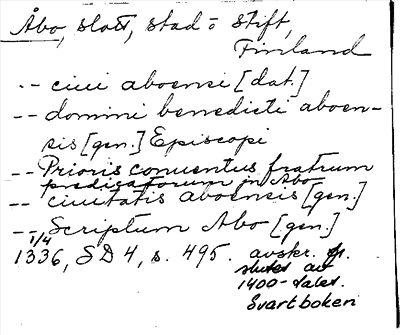 Åbo, slott, stad o stift,
Finland
-- ciui aboensi [dat.]
-- domini benedicti aboen-
sis [gen.] Episcopi
-- Prioris conuentus fratrum
predicatorum in Abo
-- ciuitatis aboensis [gen.]
-- Scriptum Abo [gen.]
1/4
1336, SD 4, s. 495. avskr. fr.
slutet av
1400-talet.
Svartboken